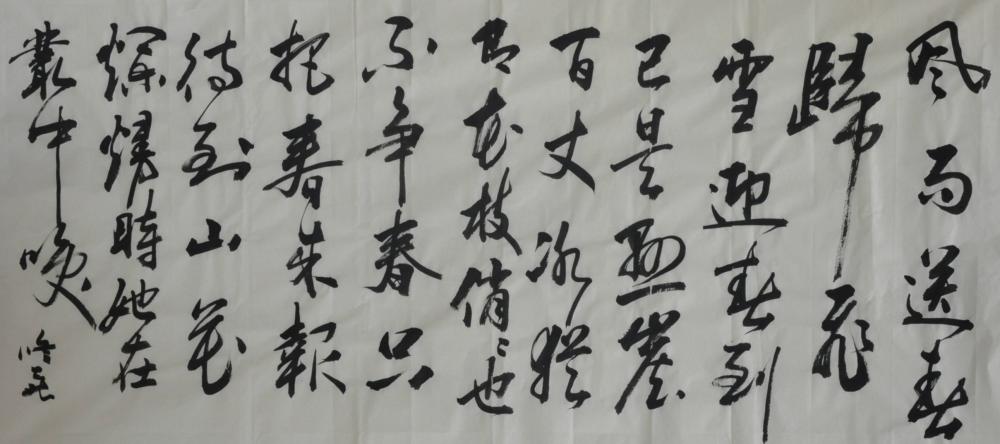 风雨送春
歸飛
雪迎春到
已是懸崖
百丈冰猶
有花枝俏〻也
不争春只
把春来報
待到山花
爛熳時她在
叢中咲